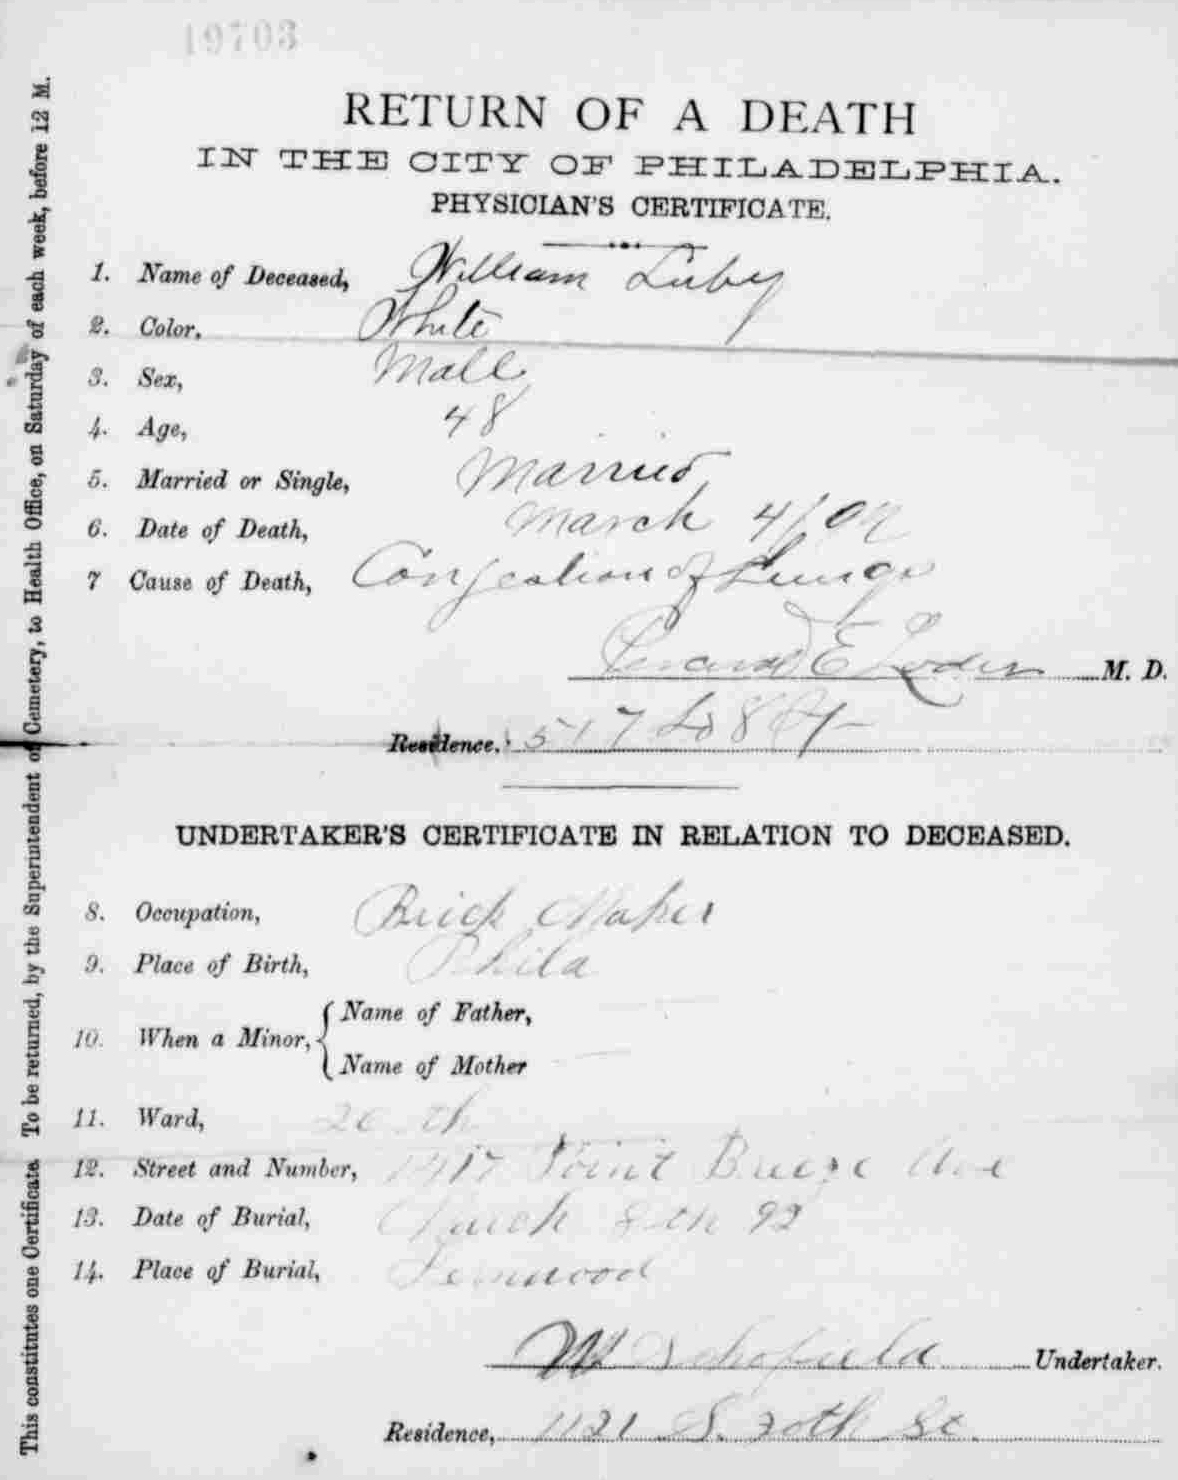 19703
RETURN OF A DEATH
IN THE CITY OF PHILADELPHIA.
PHYSICIAN'S CERTIFICATE.
1. Name of Deceased, William Luby
2. Color, White
3. Sex, Male
4. Age, 48
5. Married or Single, Married
6. Date of Death, March 4/92
7 Cause of Death, Congestion of Lungs
E Loder M. D.
Residence, 517 So 8 St
UNDERTAKER'S CERTIFICATE IN RELATION TO DECEASED.
8. Occupation, Brick Maker
9. Place of Birth, Phila
10. When a Minor, Name of Father,
Name of Mother
11. Ward, 26 th
12. Street and Number, 1417 Point Breeze Ave
13. Date of Burial, March 8th 92
14. Place of Burial, Fernwood
W Schofield Undertaker.
Residence, 1121 S. 20th St
This constitutes one Certificate. To be returned, by the Superintendent of Cemetery, to Health Office, on Saturday of each week, before 12 M.